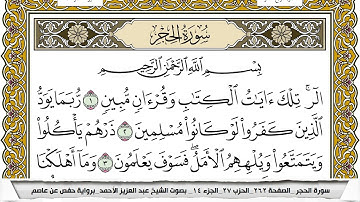 سُورَةُ الحِجْرِ
بِسْمِ اللَّهِ الرَّحْمَٰنِ الرَّحِيمِ
الٓر ۚ تِلْكَ ءَايَٰتُ ٱلْكِتَٰبِ وَقُرْءَانٍ مُّبِينٍ ١ رُّبَمَا يَوَدُّ
ٱلَّذِينَ كَفَرُوا۟ لَوْ كَانُوا۟ مُسْلِمِينَ ٢ ذَرْهُمْ يَأْكُلُوا۟
وَيَتَمَتَّعُوا۟ وَيُلْهِهِمُ ٱلْأَمَلُ ۖ فَسَوْفَ يَعْلَمُونَ ٣ وَمَآ أَهْلَكْنَا
سورة الحجر _ الصفحة ٢٦٢ _ الحزب ٢٧ _ الجزء ١٤ _ بصوت الشيخ عبد العزيز الأحمد _ برواية حفص عن عاصم